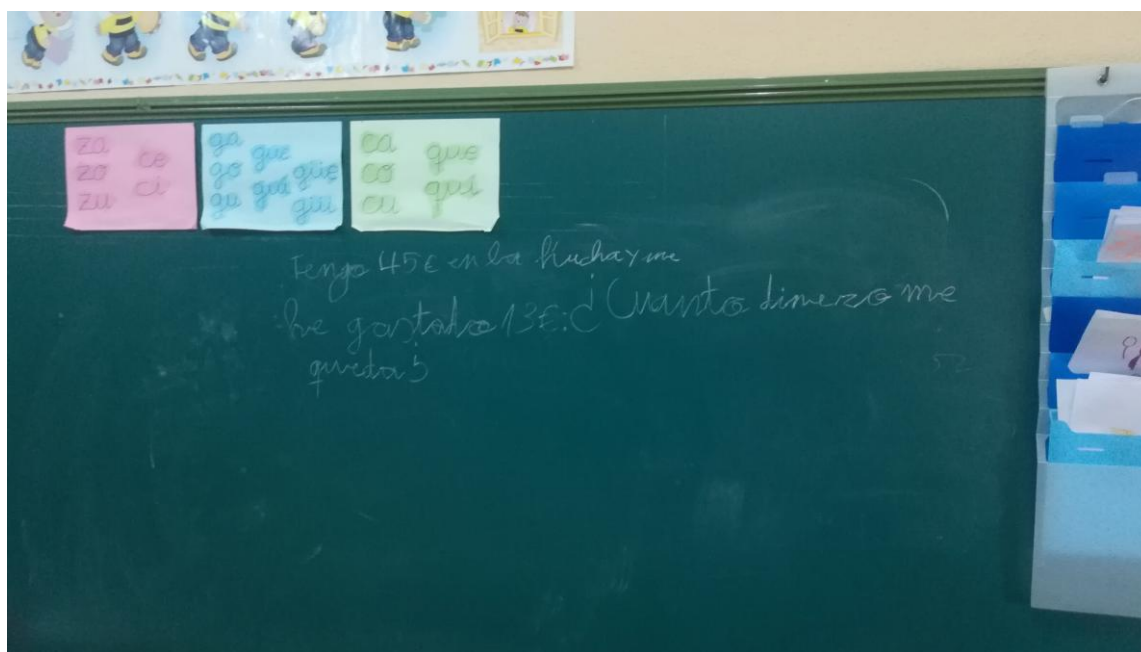 za
zo
zu
ce
ci
ga
go
gu
gue
gui
güe
güi
ca
co
cu
que
qui
Tengo 45€ en la Hucha y me
he gastado 13€: ¿Cuanto dinero me
queda?
52